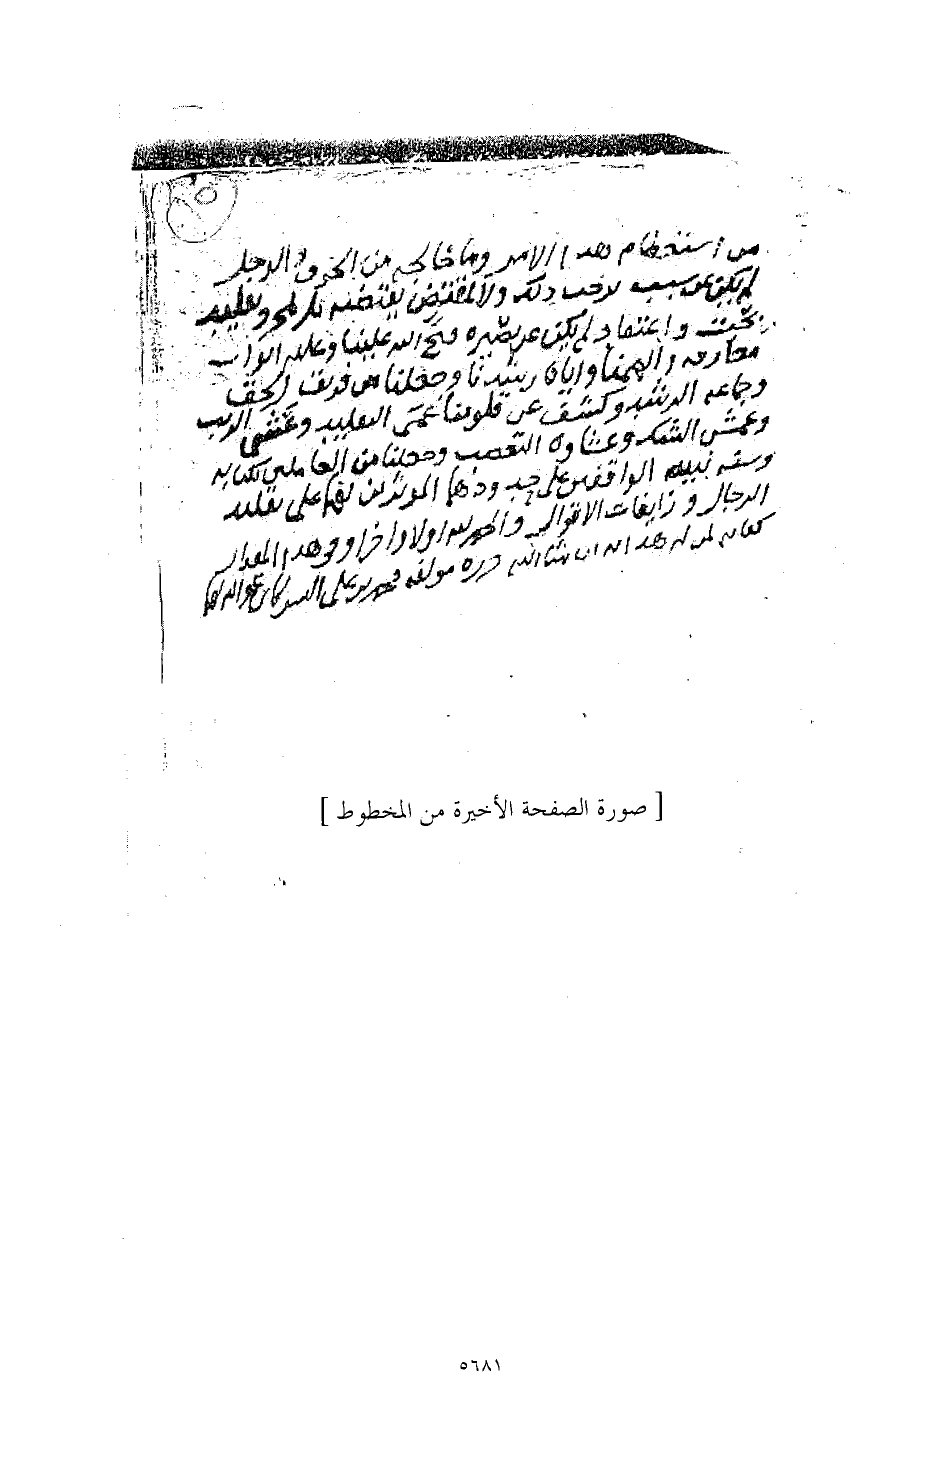 من استعظام هذا الامر وما خالجه من الخوف والوجل
لم يكن عن سبب يوجب ذلك ولا لمقتض يقتضيه بل لمجرد تقليد
بحت واعتقاد لم يكن عن بصيرة فتح الله علينا وعليه ابواب
معارفه والهمنا واياه رشدنا وجعلنا من فريق الحق
وجماعة الرشد وكشف عن قلوبنا عمى التقليد وغشى الريب
وعمش الشك وغشاوة التعصب وجعلنا من العاملين بكتابه
وسنة نبيه الواقفين على حدودهما المؤثرين لهما على تقليد
الرجال وزايفات الاقوال والحمد لله اولا واخرا وفي هذا المقدار
كفاية لمن له هداية ان شاء الله حرره مولفه محمد بن علي الشوكاني غفر الله لهما
[ صورة الصفحة الأخيرة من المخطوط ]
٥٦٨١